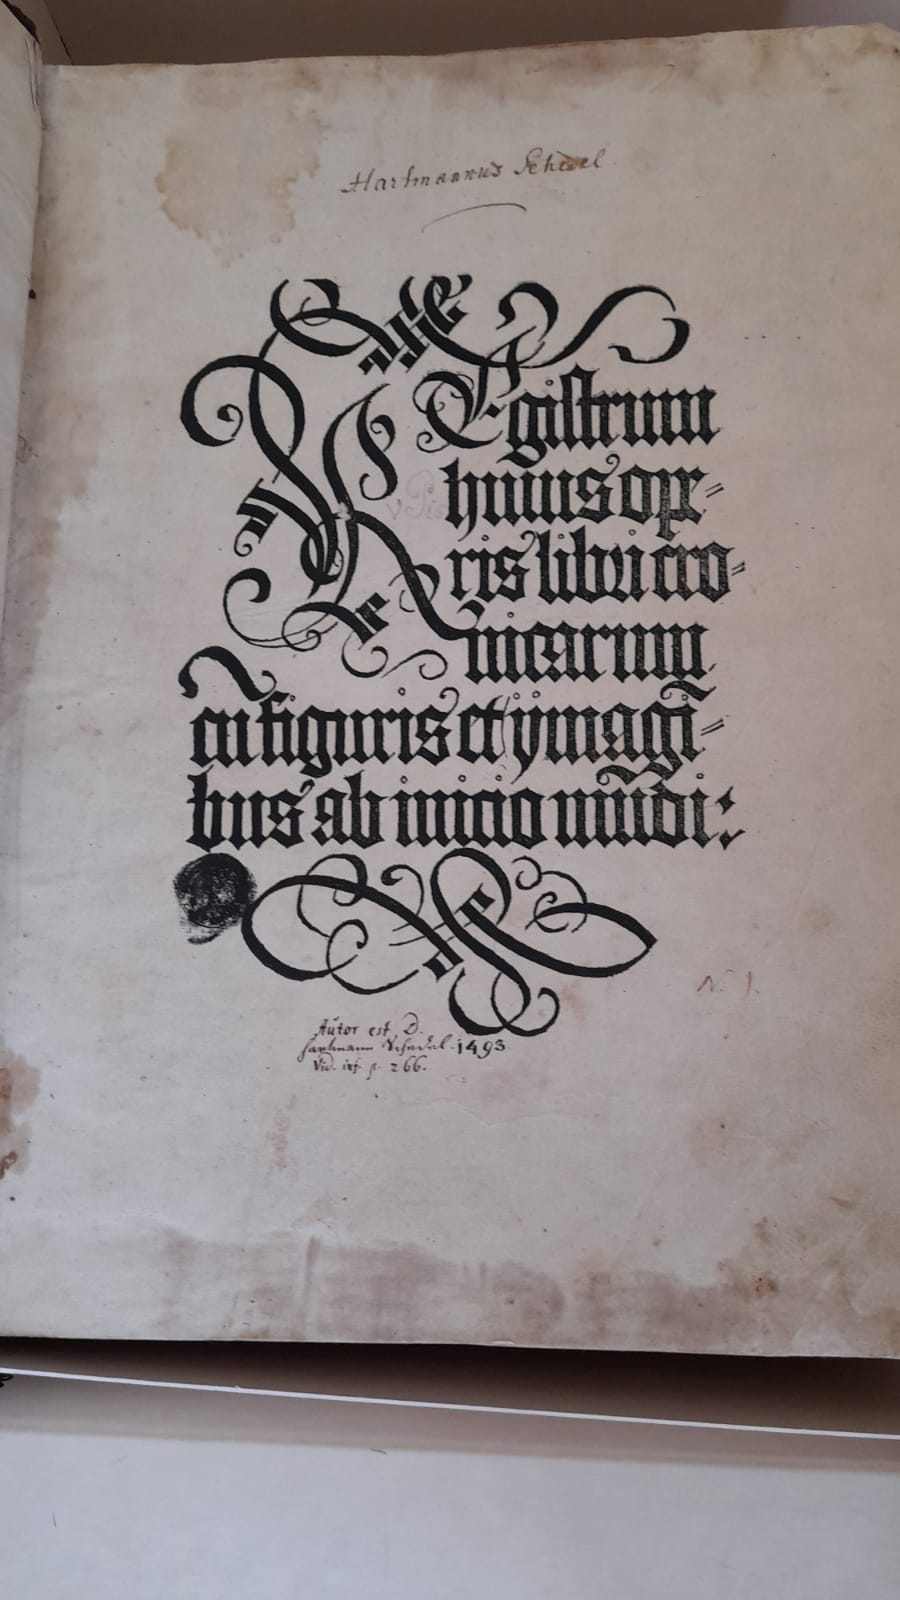 Hartmannus Schedel
REgistrum
huius ope-
ris libri cro-
nicarum
cũ figuris et ymagĩ-
bus ab inicio mũdi:
Autor est D.
Hartmann Schedel. 1493.
Vid. inf. p. 266.
N. 1.